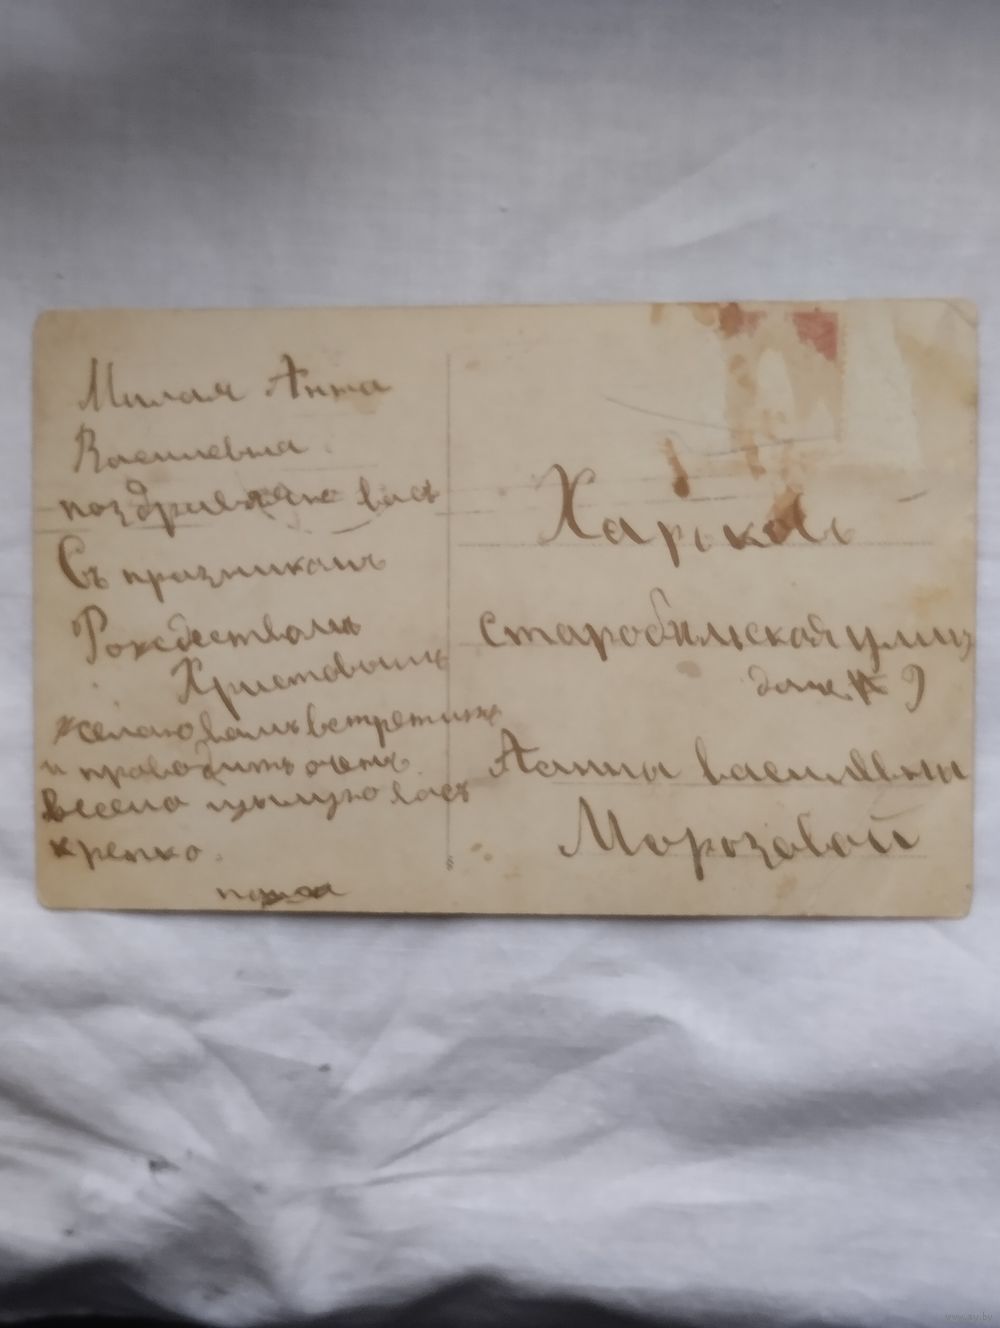 Милая Анна
Василевна
поздравляю васъ
Съ празникомъ
Рождествомъ
Христовымъ
желаю вамъ встретить
и праводить очень
весело цылую васъ
крепко.
Харьковъ
старобельская улиц
домъ № 9
Анны василевны
Морозовой
www.ay.by